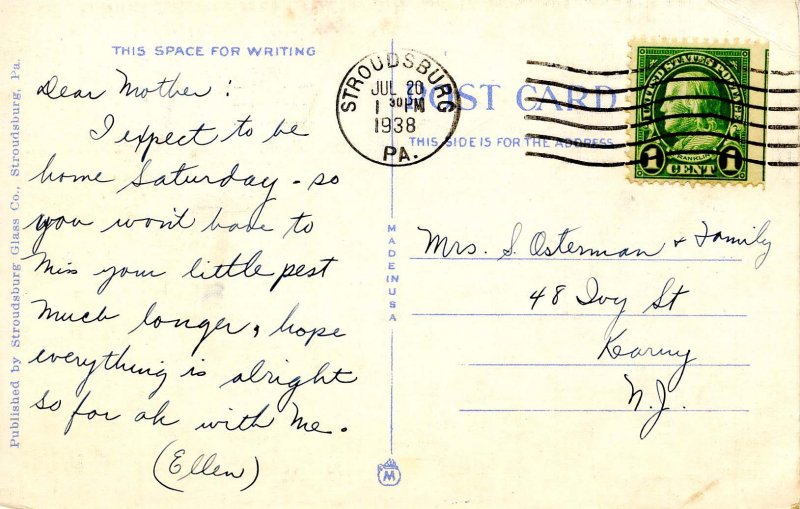 THIS SPACE FOR WRITING
Dear Mother:
I expect to be
home Saturday - so
you won't have to
miss your little pest
much longer, hope
everything is alright
so far ok with me.
(Ellen)
Published by Stroudsburg Glass Co., Stroudsburg, Pa.
STROUDSBURG
JUL 20
1 30 PM
1938
PA.
POST CARD
THIS SIDE IS FOR THE ADDRESS
UNITED STATES POSTAGE
FRANKLIN
1 CENT 1
MADE IN USA
Mrs. S. Osterman & Family
48 Ivy St
Kearny
N.J.
M